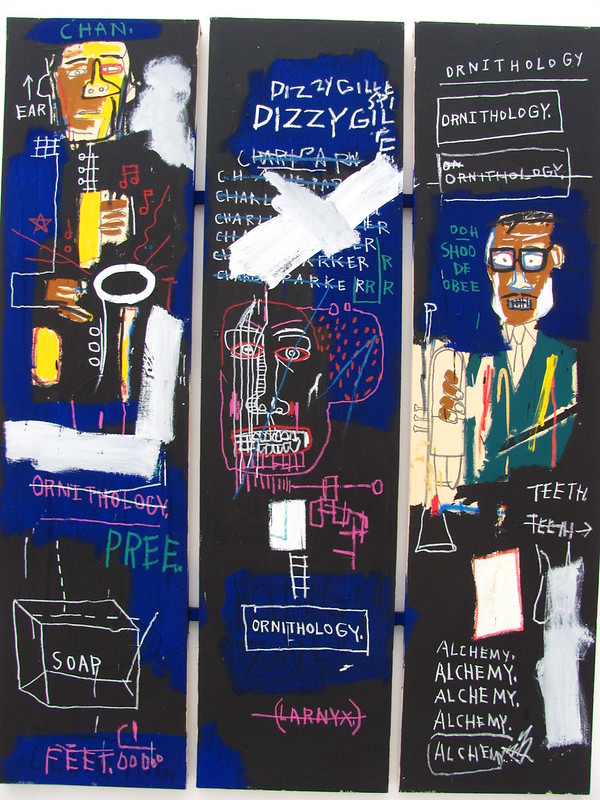 CHAN.
EAR
ORNITHOLOGY.
PREE.
SOAP
FEET.
DIZZYGILLE
SPI
DIZZYGIL
E
CHARL PA RK
CH
CHAN
CHARL ER
CH ER
CHARL ARKER R
CHARLES PARKE RR R
ORNITHOLOGY.
(LARNYX.)
ORNITHOLOGY
ORNITHOLOGY.
ORNITHOLOGY.
OOH
SHOO
DE
OBEE
TEETH
TEETH→
ALCHEMY.
ALCHEMY.
ALCHEMY.
ALCHEMY.
ALCHEMY